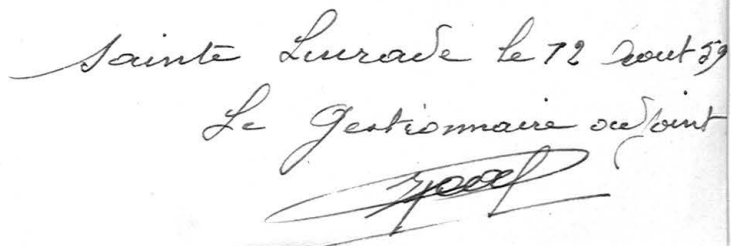 Sainte Livrade le 12 Aout 59
Le Gestionnaire adjoint